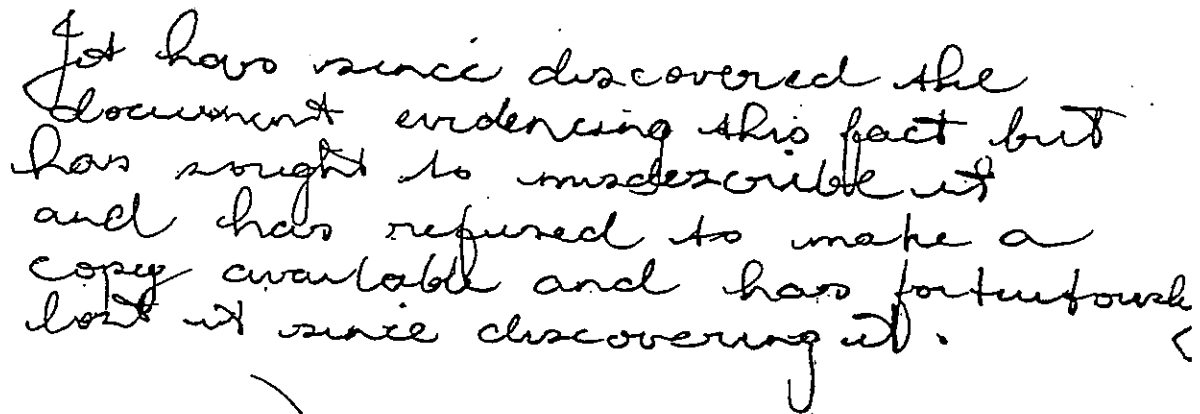 It has since discovered the
document evidencing this fact but
has sought to misdescribe it
and has refused to make a
copy available and has fortuitously
lost it since discovering it.